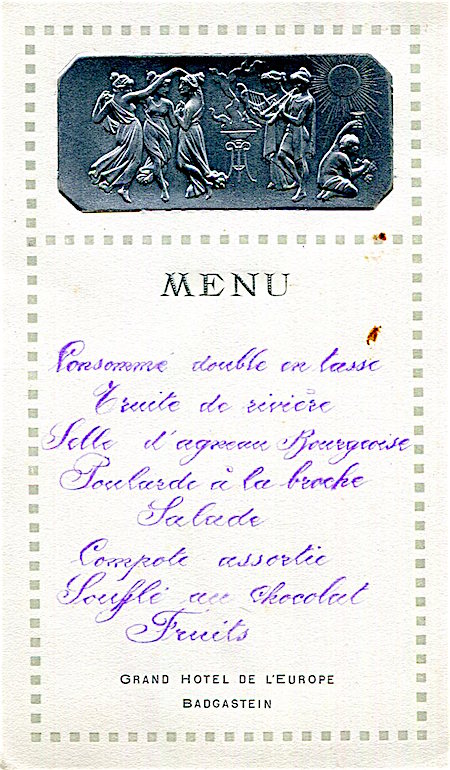 MENU
Consommé double en tasse
Truite de rivière
Selle d'agneau Bourgeoise
Poularde à la broche
Salade
Compote assortie
Soufflé au Chocolat
Fruits
GRAND HOTEL DE L'EUROPE
BADGASTEIN